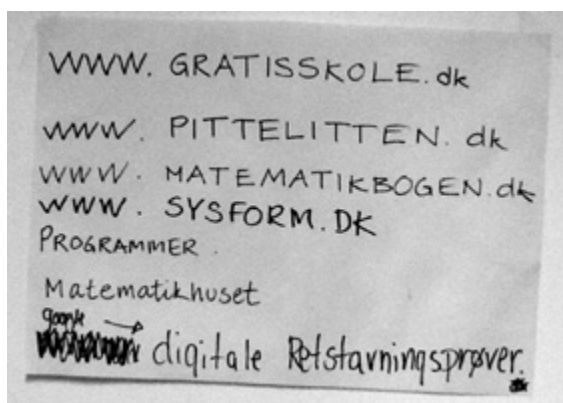 WWW. GRATISSKOLE.dk
WWW. PITTELITTEN.dk
WWW. MATEMATIKBOGEN.dk
WWW. SYSFORM.DK
PROGRAMMER
Matematikhuset
digitale Retstavningsprøver.